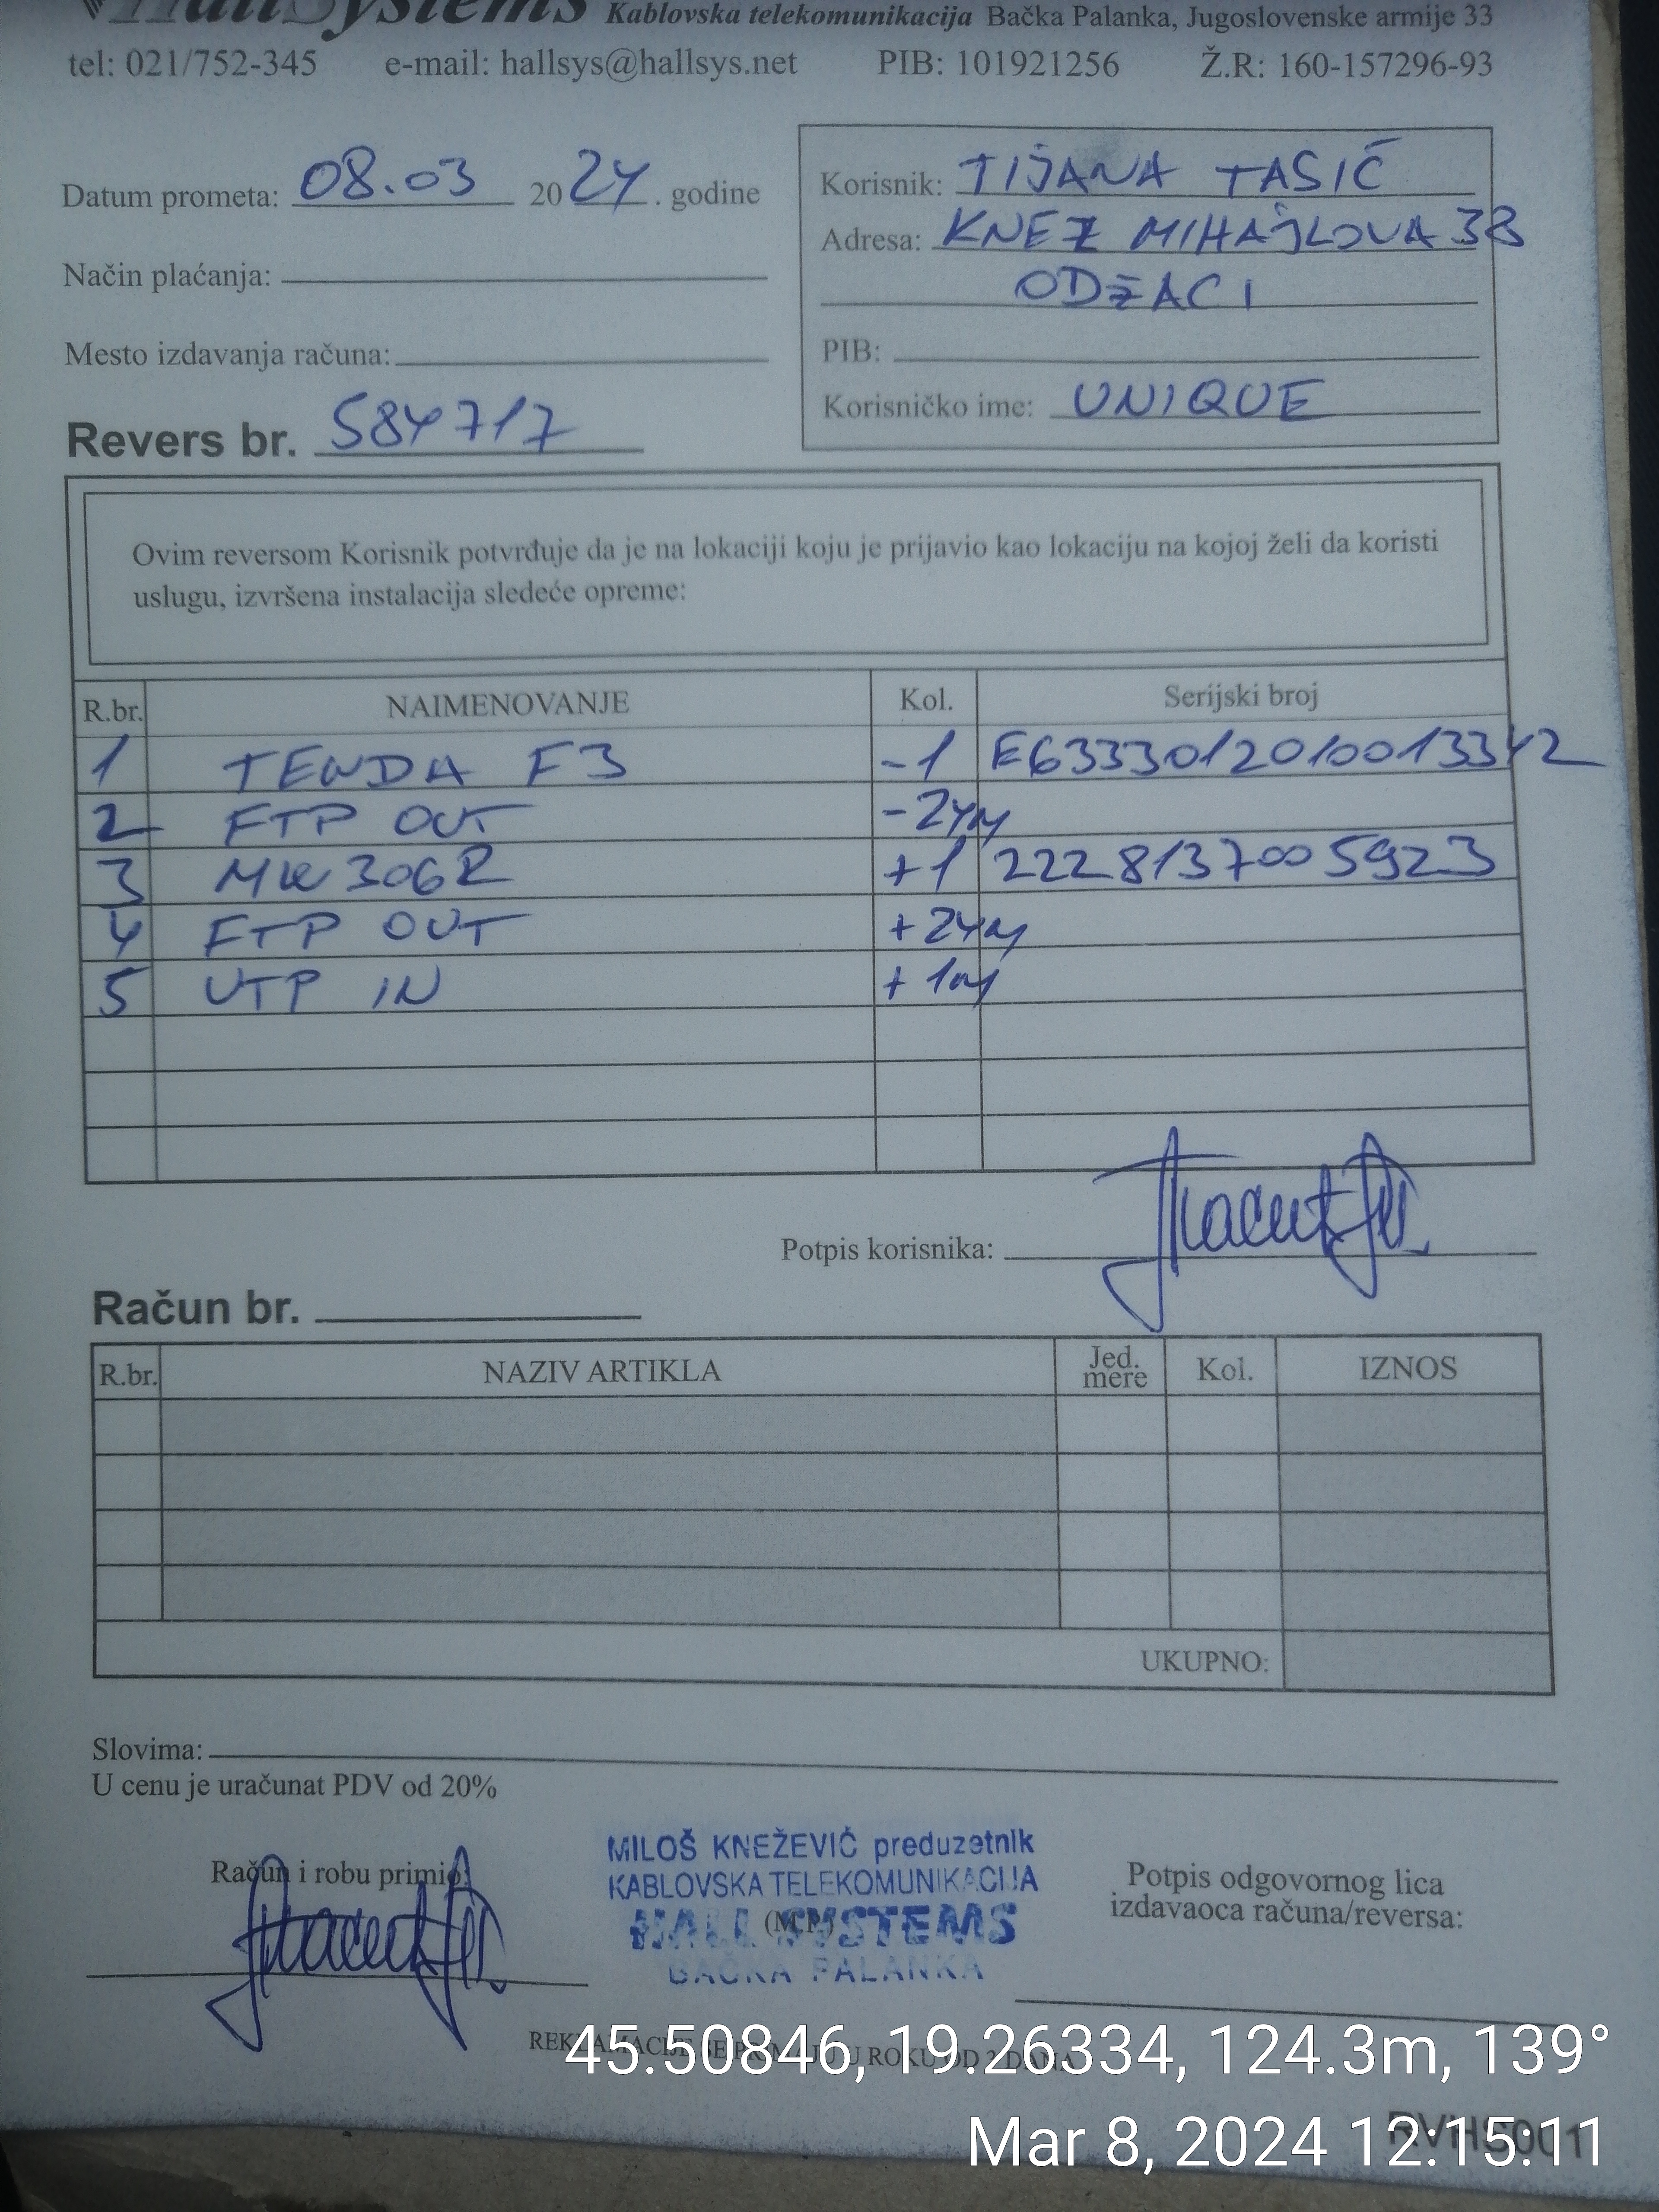 HallSystems Kablovska telekomunikacija Bačka Palanka, Jugoslovenske armije 33
tel: 021/752-345 e-mail: hallsys@hallsys.net PIB: 101921256 Ž.R: 160-157296-93
Datum prometa: 08.03 2024. godine
Način plaćanja:
Mesto izdavanja računa:
Revers br. 584717
Korisnik: TIJANA TASIĆ
Adresa: KNEZ MIHAJLOVA 38
ODŽACI
PIB:
Korisničko ime: UNIQUE
Ovim reversom Korisnik potvrđuje da je na lokaciji koju je prijavio kao lokaciju na kojoj želi da koristi
uslugu, izvršena instalacija sledeće opreme:
R.br. NAIMENOVANJE Kol. Serijski broj
1 TENDA F3 -1 E6333012010013342
2 FTP OUT -24m
3 MW306R +1 2228137005923
4 FTP OUT +24m
5 UTP IN +1m
Potpis korisnika:
Račun br.
R.br. NAZIV ARTIKLA Jed. mere Kol. IZNOS
UKUPNO:
Slovima:
U cenu je uračunat PDV od 20%
Račun i robu primio:
MILOŠ KNEŽEVIĆ preduzetnik
KABLOVSKA TELEKOMUNIKACIJA
HALL SYSTEMS
(M.P.)
BAČKA PALANKA
Potpis odgovornog lica
izdavaoca računa/reversa:
REKLAMACIJE SE PRIMAJU U ROKU OD 2 DANA
45.50846, 19.26334, 124.3m, 139°
Mar 8, 2024 12:15:11
RVHS001